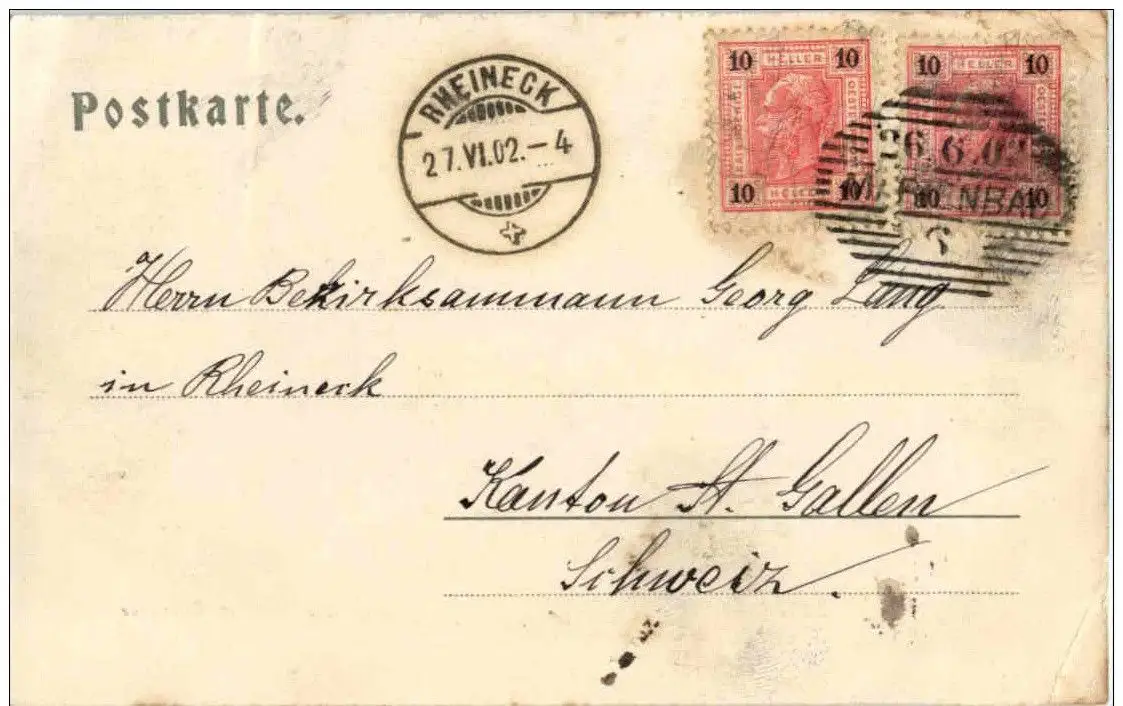 Postkarte.
RHEINECK
27.VI.02.-4
10 HELLER 10
10 HELLER 10
10 HELLER 10
10 10
6.6.02
7
Herrn Bezirksammann Georg Lang
in Rheineck
Kanton St. Gallen
Schweiz.